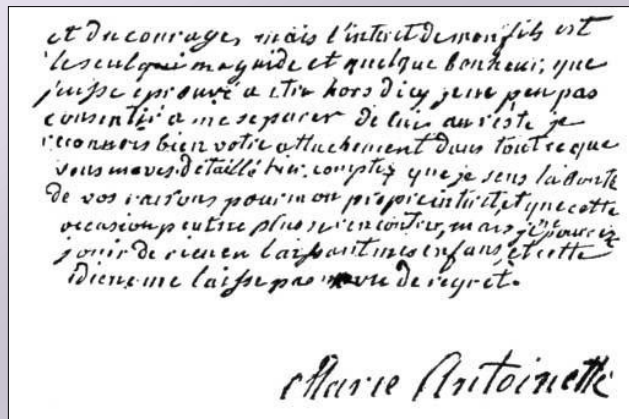 et du courage, mais l'interet de mon fils est
le seul qui me guide et quelque bonheur, que
j'eusse éprouvé a etre hors d'icy je ne peu pas
consentir a me separer de lui. au reste je
reconnois bien votre attachement dans tout ce que
vous m'aves détaillé hier. comptez que je sens la bonté
de vos raisons pour mon propre interet et que cette
occasion peut ne plus se rencontrer, mais je ne pourrois
jouir de rien en laissant mes enfans, et cette
idiene me laisse pas de regret.
Marie Antoinette